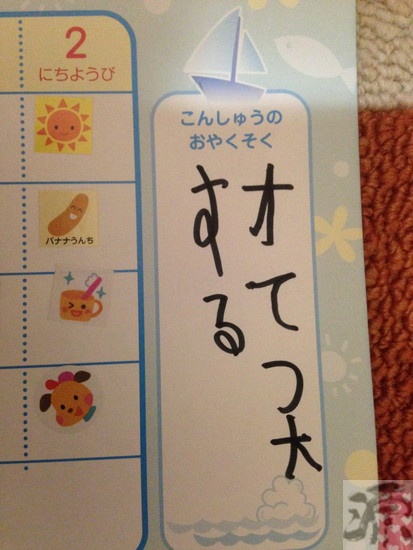 2
にちようび
バナナうんち
こんしゅうの
おやくそく
オてつ大
する